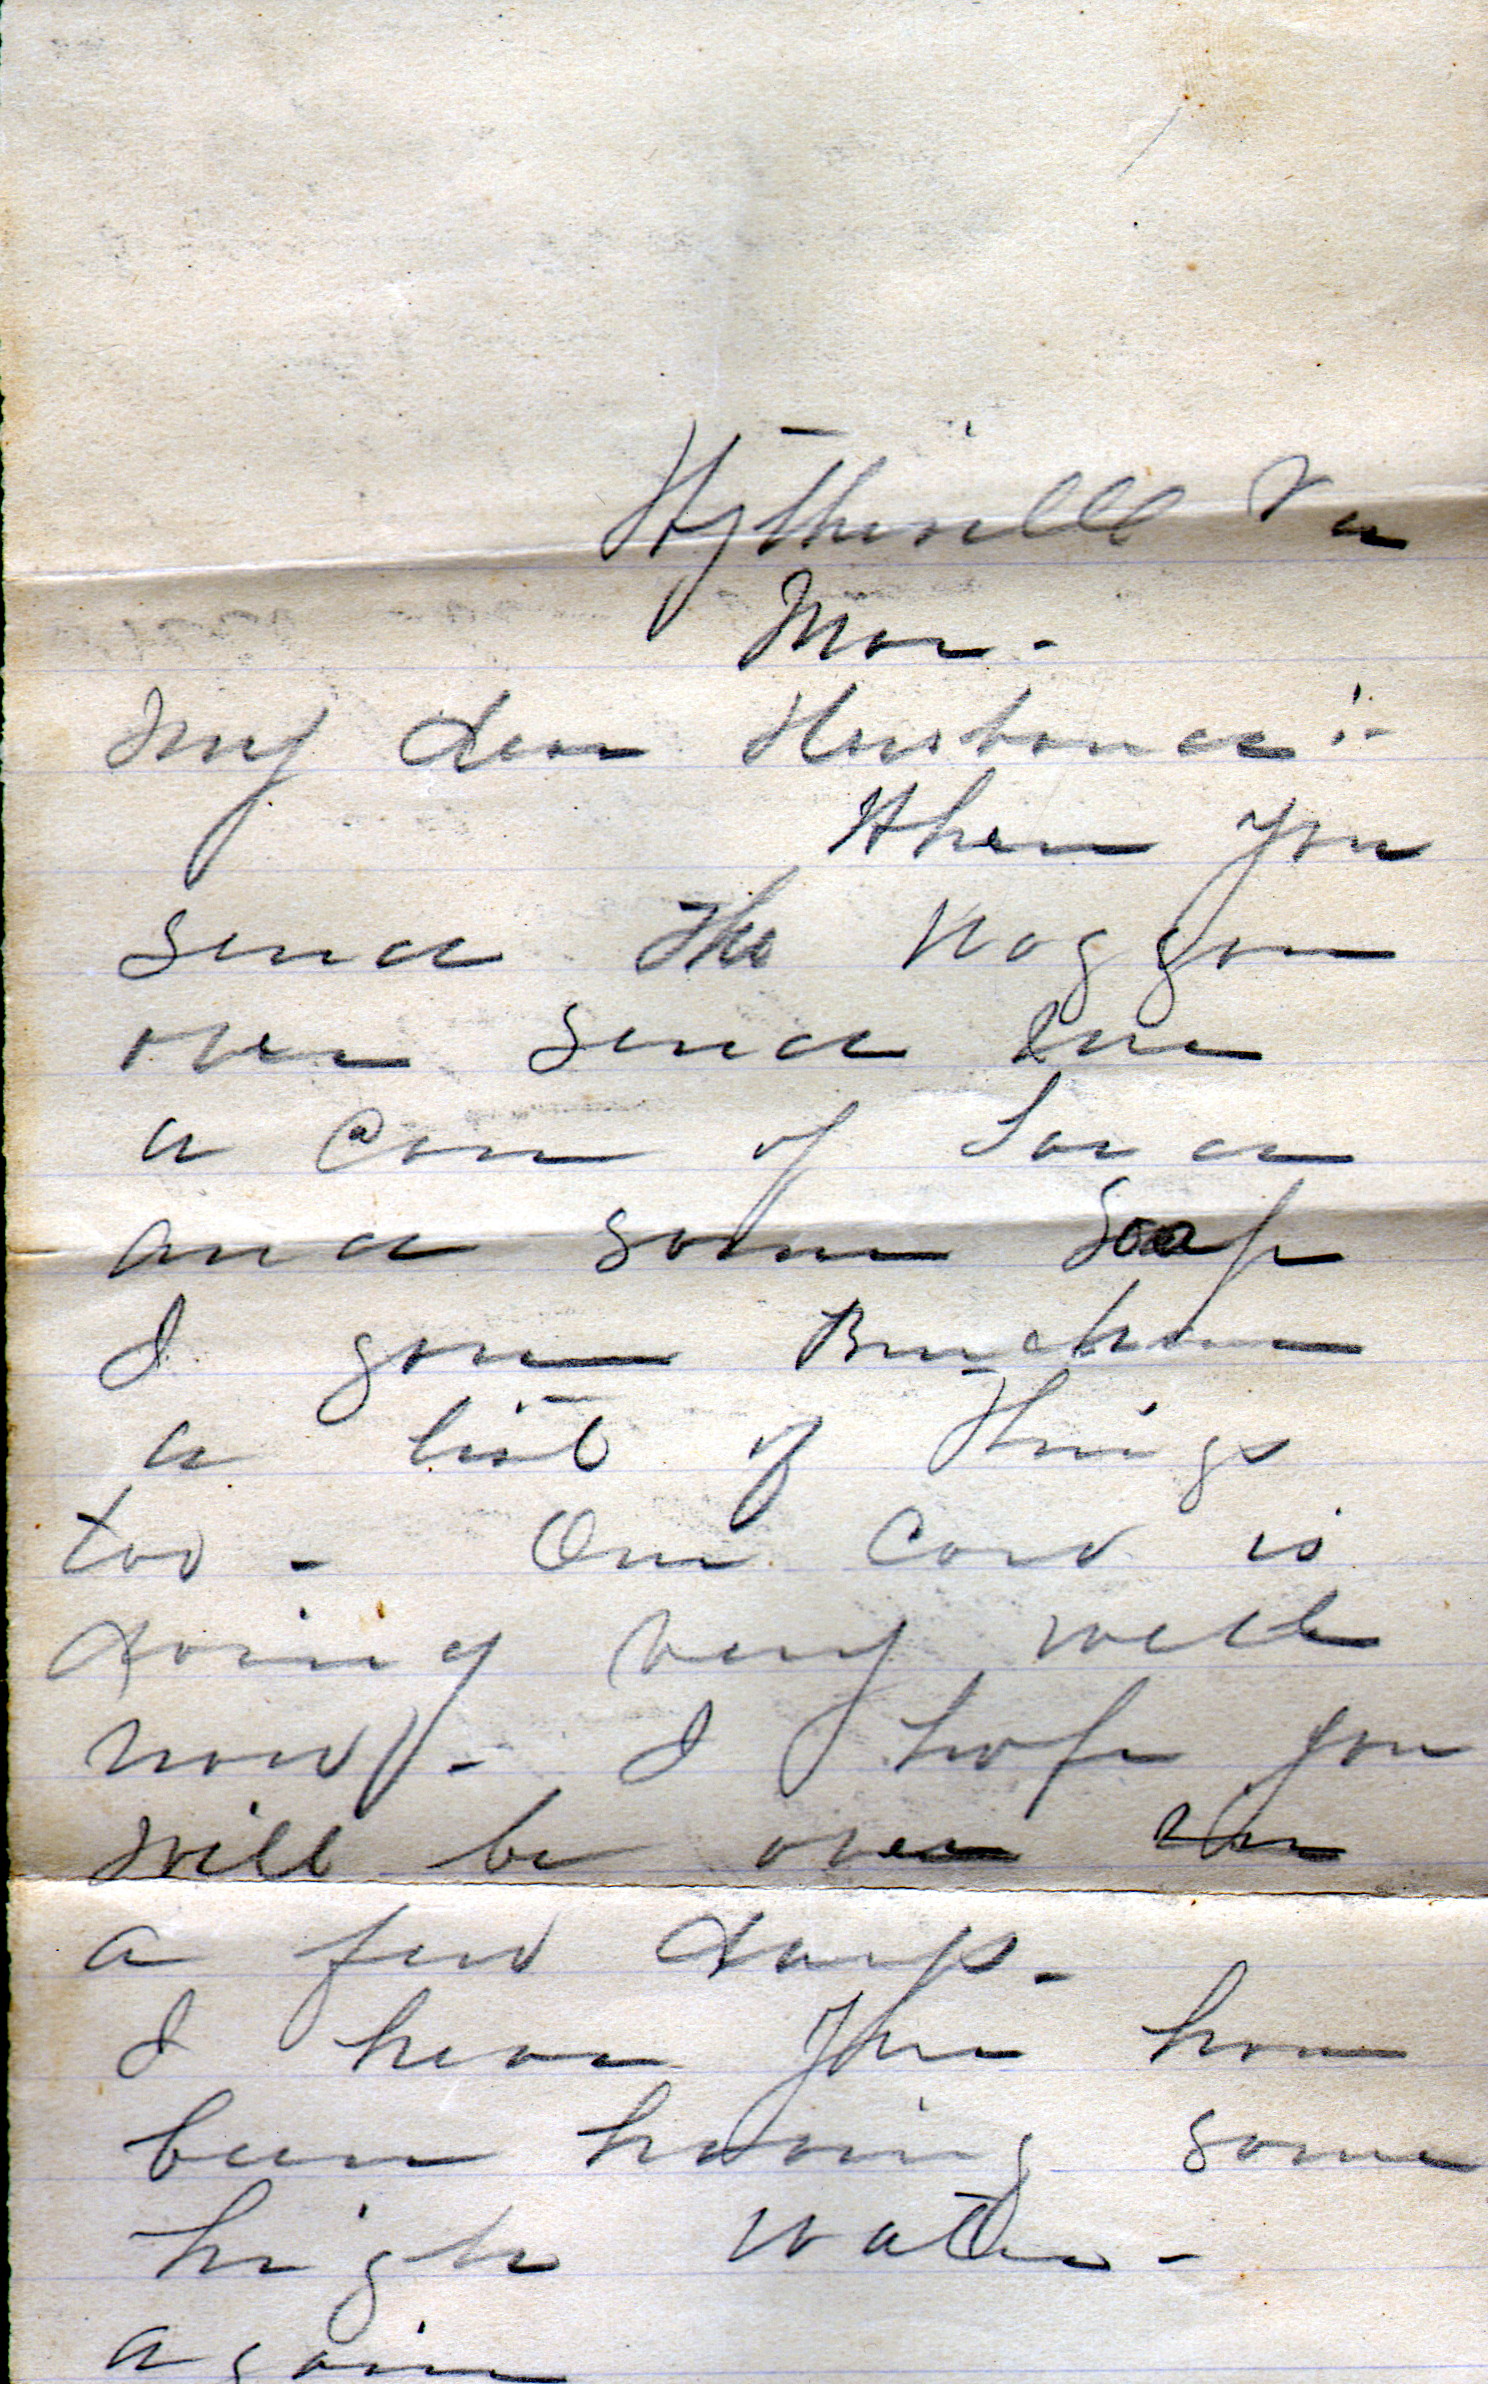 Wytheville Va
Mon-
My dear Husband:-
When you
send the waggon
over send me
a can of Lard
and some Soap
I gave
a list of things
too - Our Cow is
doing very well
now - I hope you
will be over in
a few days -
I hear you have
been having some
high water -
again